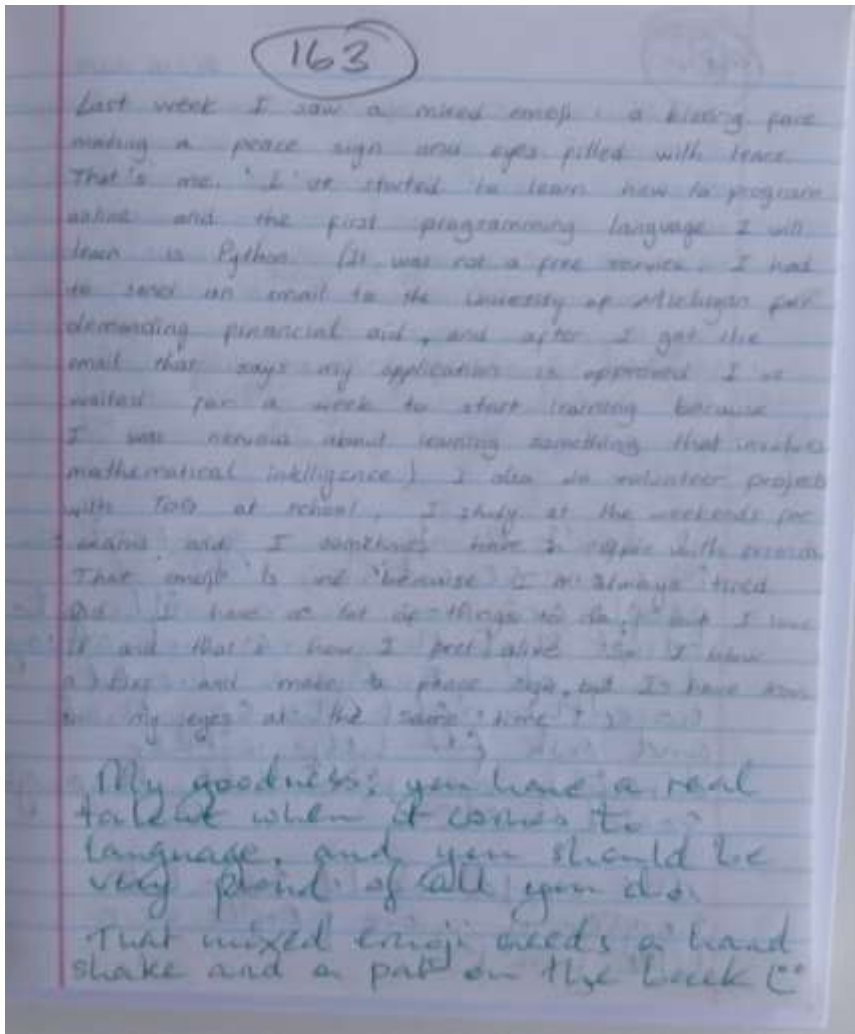 163
Last week I saw a mixed emoji : a kissing face
making a peace sign and eyes filled with tears.
That's me. I've started to learn how to program
online and the first programming language I will
learn is Python. (It was not a free service. I had
to send an email to the University of Michigan for
demanding financial aid, and after I got the
email that says my application is approved I've
waited for a week to start learning because
I was nervous about learning something that involves
mathematical intelligence) I also do volunteer projects
with at school, I study at the weekends for
exams and I sometimes have to with
That emoji is me because I'm always tired
and I have a lot of things to do, but I love
it and that's how I feel alive. So I blow
a kiss and make a peace sign, but I have tears
in my eyes at the same time
My goodness; you have a real
talent when it comes to
language, and you should be
very proud of all you do.
That mixed emoji needs a hand
shake and a pat on the back